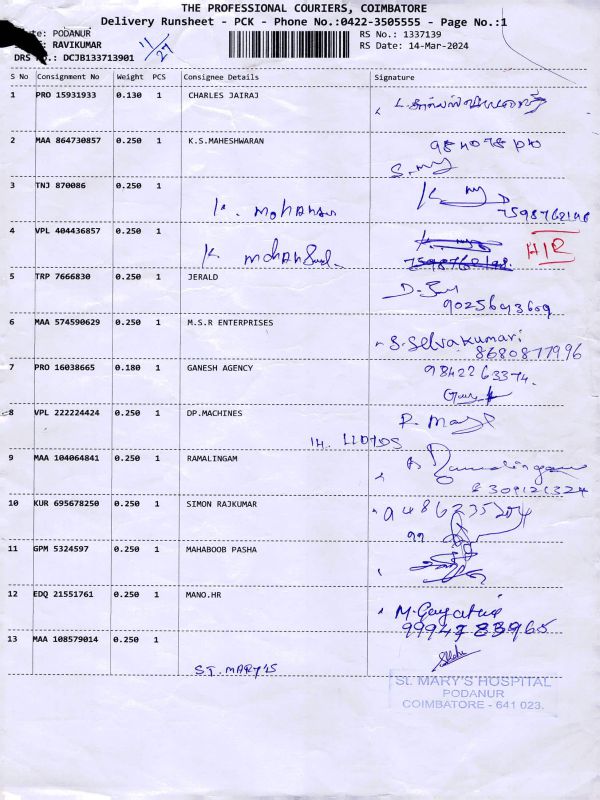 THE PROFESSIONAL COURIERS, COIMBATORE
Delivery Runsheet - PCK - Phone No.:0422-3505555 - Page No.:1
PODANUR
RAVIKUMAR
11/27
RS No.: 1337139
RS Date: 14-Mar-2024
DRS No.: DCJB133713901
S No Consignment No Weight PCS Consignee Details Signature
1 PRO 15931933 0.130 1 CHARLES JAIRAJ
2 MAA 864730857 0.250 1 K.S.MAHESHWARAN
3 TNJ 870086 0.250 1
K. MOHAN
7598762198
4 VPL 404436857 0.250 1
K
H/R
5 TRP 7666830 0.250 1 JERALD
9025693609
6 MAA 574590629 0.250 1 M.S.R ENTERPRISES
S.Selvakumari
8680877996
7 PRO 16038665 0.180 1 GANESH AGENCY
9842263374.
8 VPL 222224424 0.250 1 DP.MACHINES
LLOYDS
9 MAA 104064841 0.250 1 RAMALINGAM
10 KUR 695678250 0.250 1 SIMON RAJKUMAR
9486235204
11 GPM 5324597 0.250 1 MAHABOOB PASHA
12 EDQ 21551761 0.250 1 MANO.HR
M.Gayathri
9994783965
13 MAA 108579014 0.250 1
ST. MARY'S
ST. MARY'S HOSPITAL
PODANUR
COIMBATORE - 641 023.